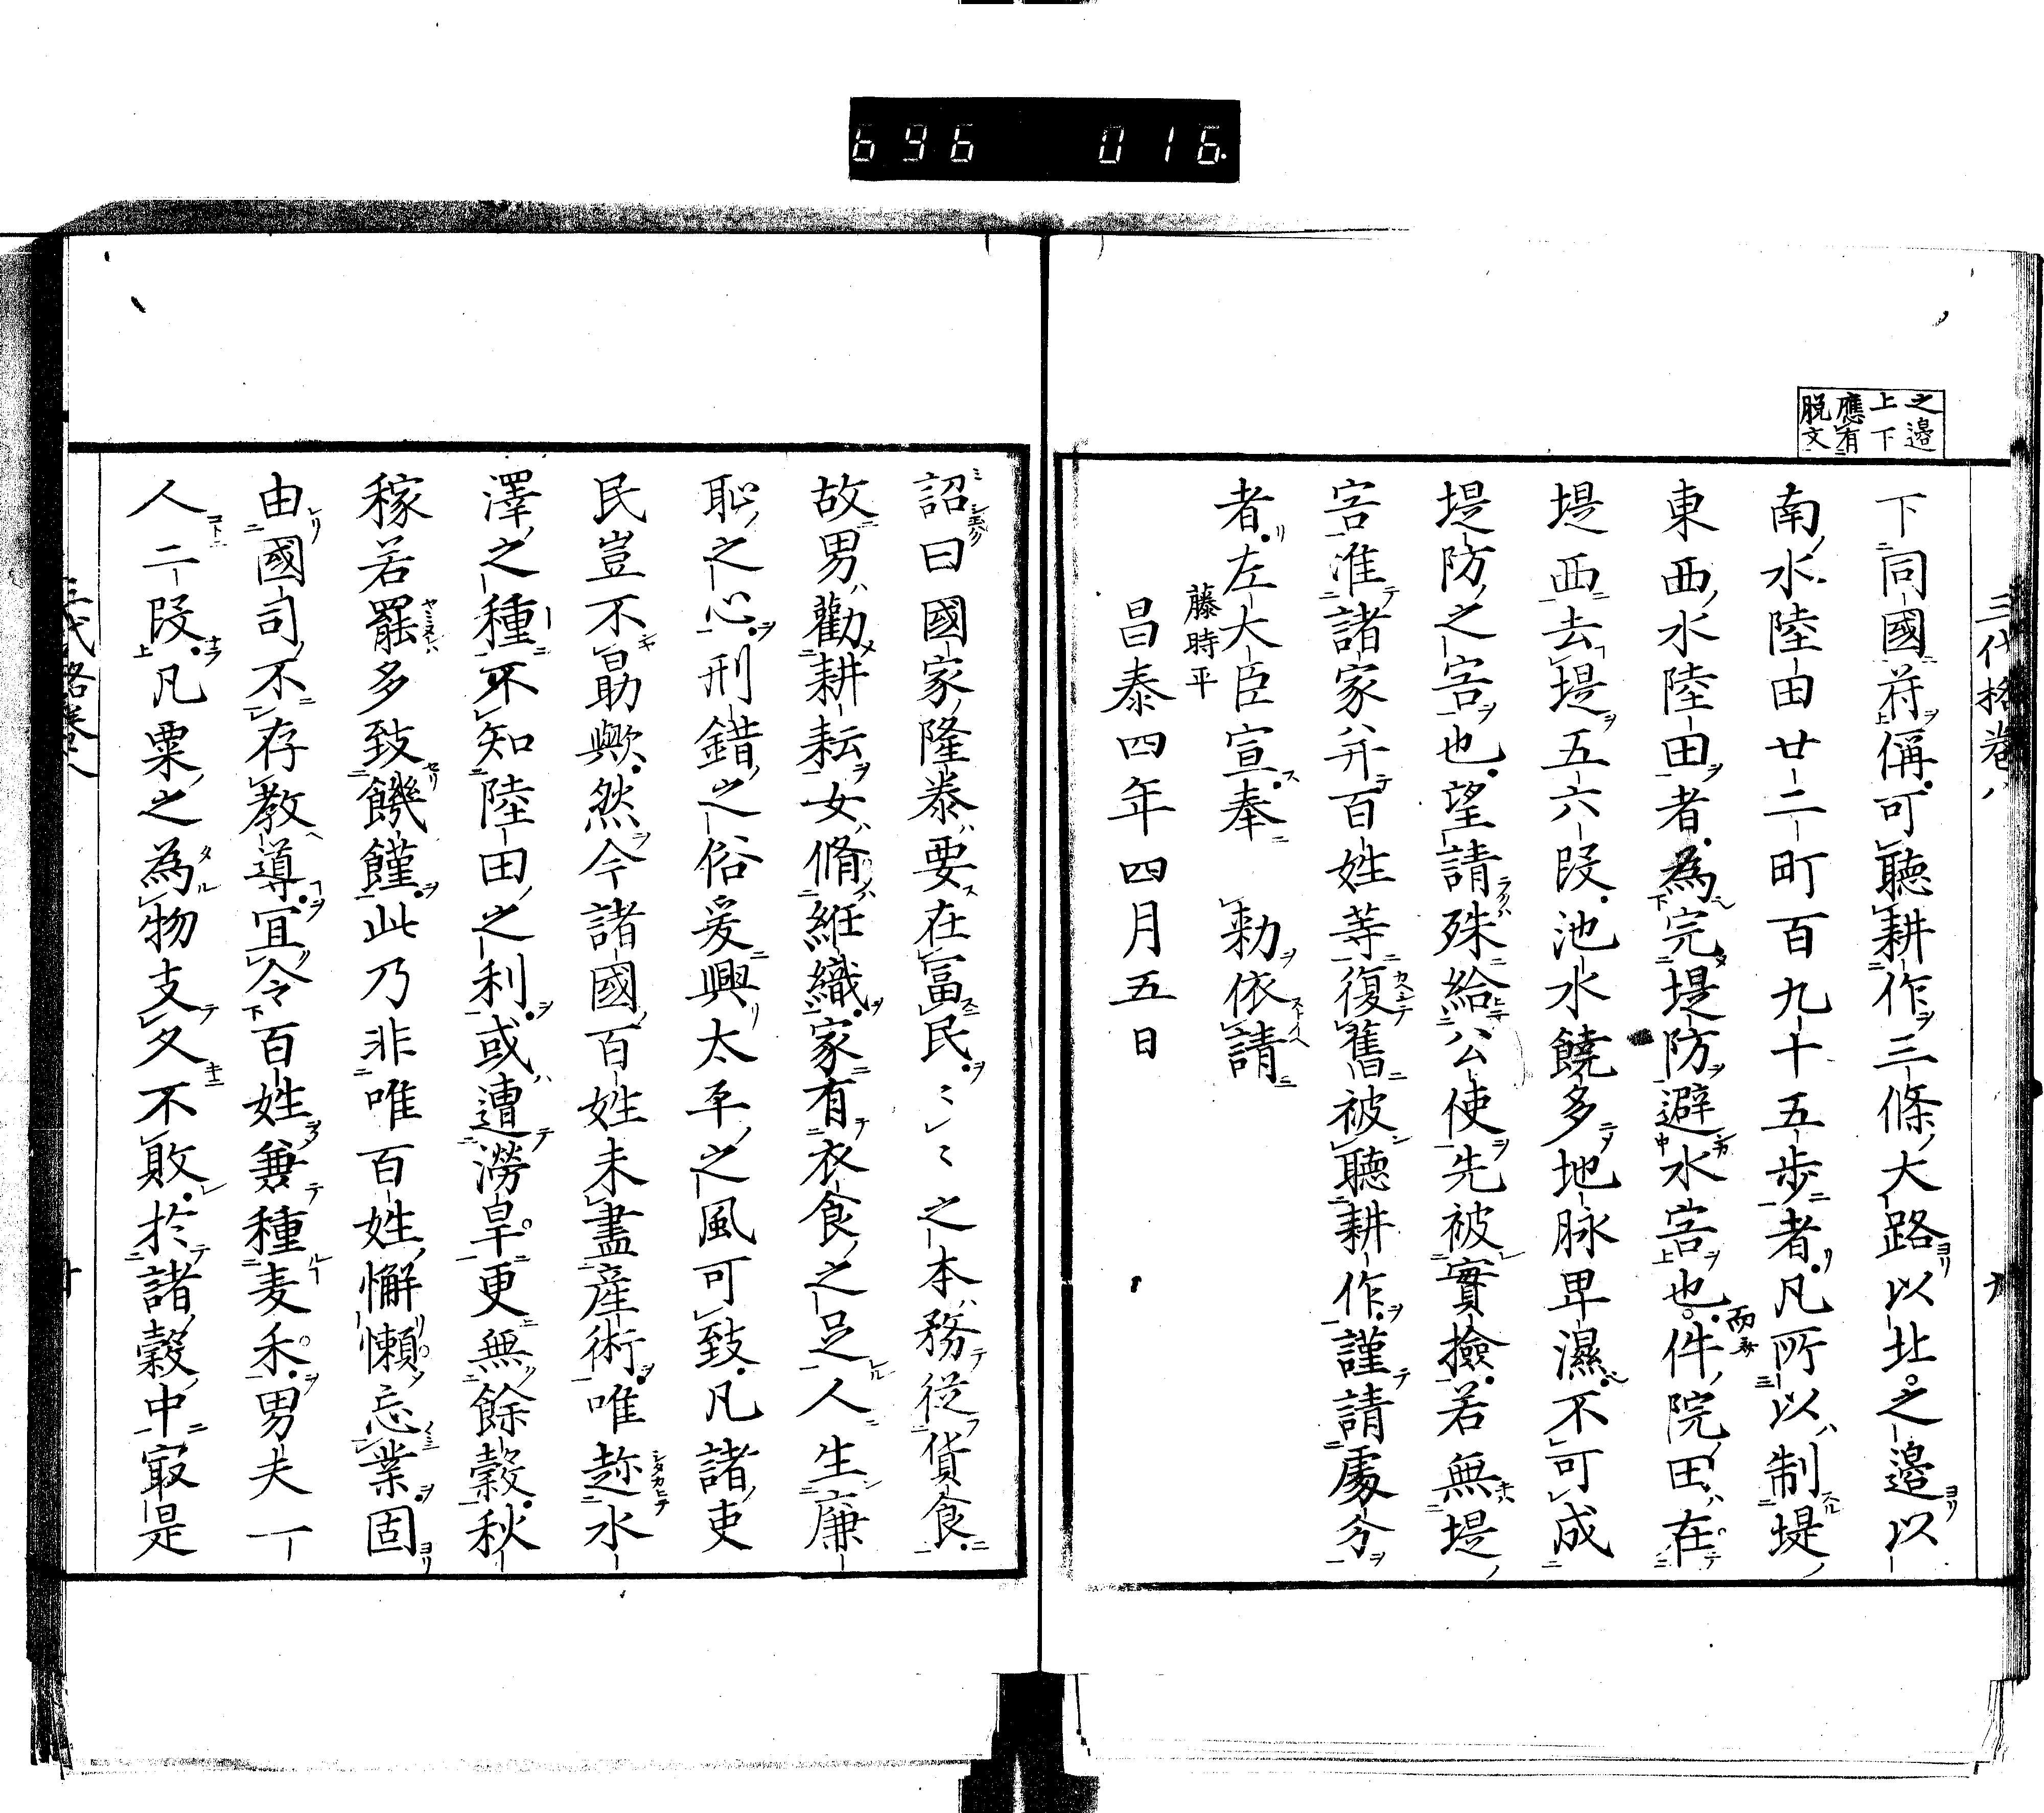 696 016
之邉
上下
應有
脱文
三代格巻八
下同國符偁可聽耕作三條大路以北之邉以
南水陸田廿二町百九十五歩者凡所以制堤
東西水陸田者為完堤防避水害也件院田在
堤西去堤五六段池水饒多地脉卑濕不可成
堤防之害也望請殊給公使先被實撿若無堤
害准諸家并百姓等復舊被聽耕作謹請處分
者左大臣宣奉 勅依請
藤時平
昌泰四年四月五日
詔曰國家隆泰要在富民〻〻之本務従貨食
故男勸耕耘女脩絍織家有衣食之足人生廉
恥之心刑錯之俗爰興太平之風可致凡諸吏
民豈不勗歟然今諸國百姓未盡産術唯趂水
澤之種不知陸田之利或遭澇旱更無餘穀秋
稼若罷多致饑饉此乃非唯百姓懈懶忘業固
由國司不存教導宜令百姓兼種麦禾男夫一
人二段凡粟之為物支久不敗於諸穀中㝡是